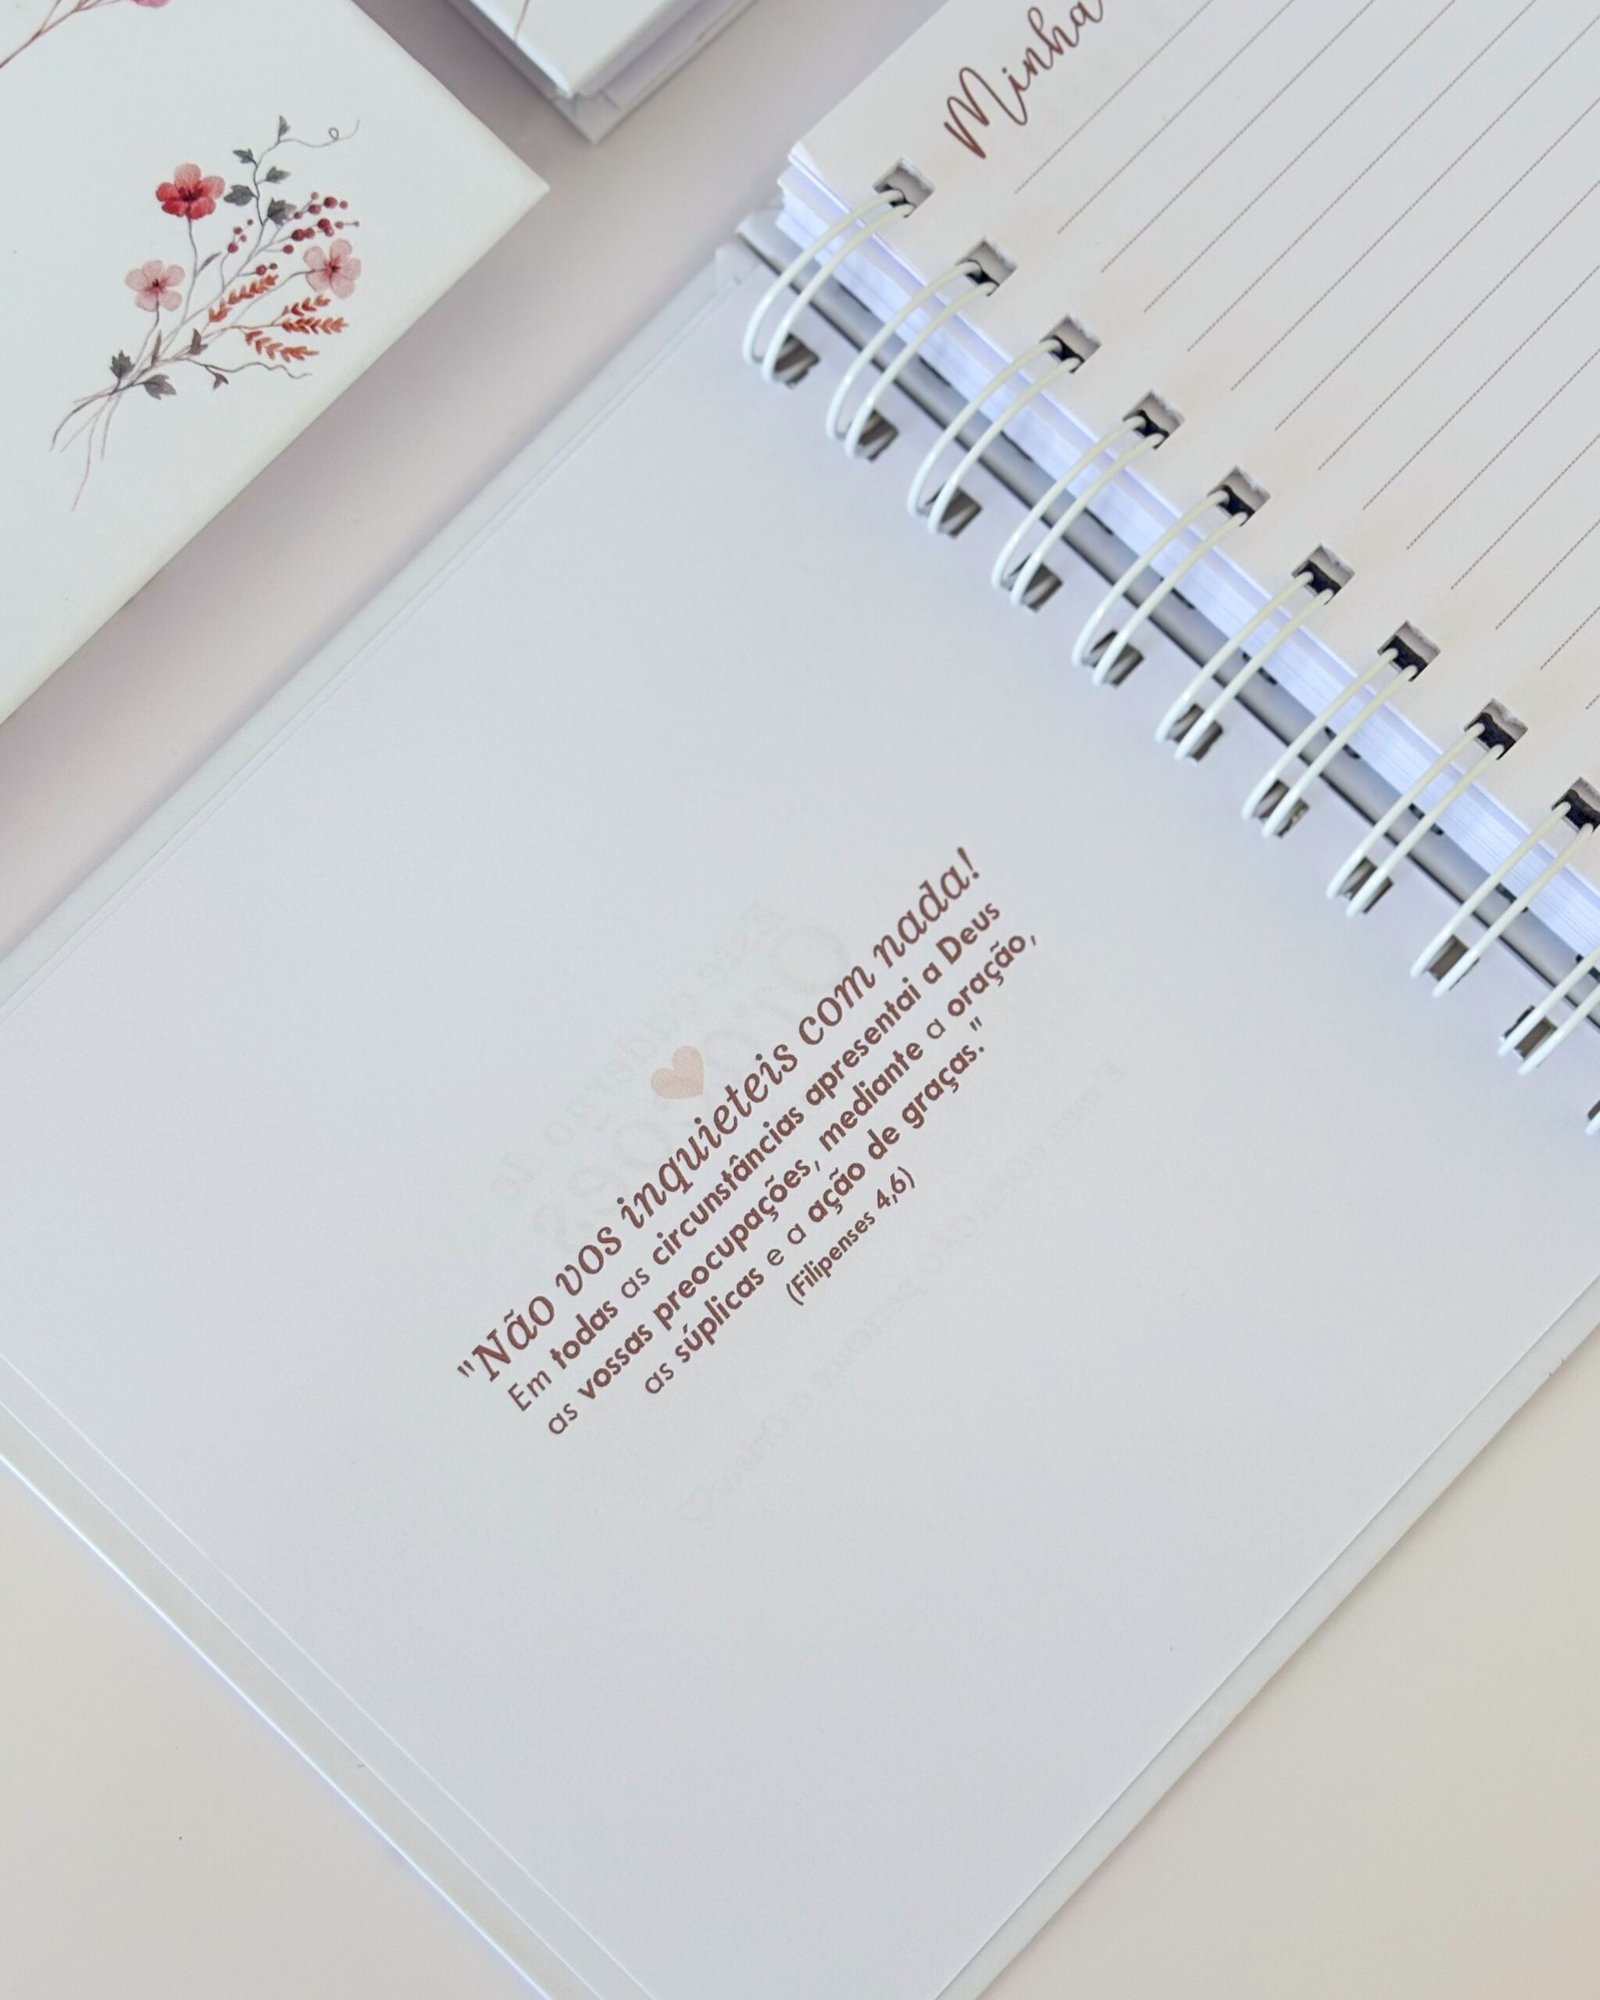 Minha
"Não vos inquieteis com nada!
Em todas as circunstâncias apresentai a Deus
as vossas preocupações, mediante a oração,
as súplicas e a ação de graças."
(Filipenses 4,6)